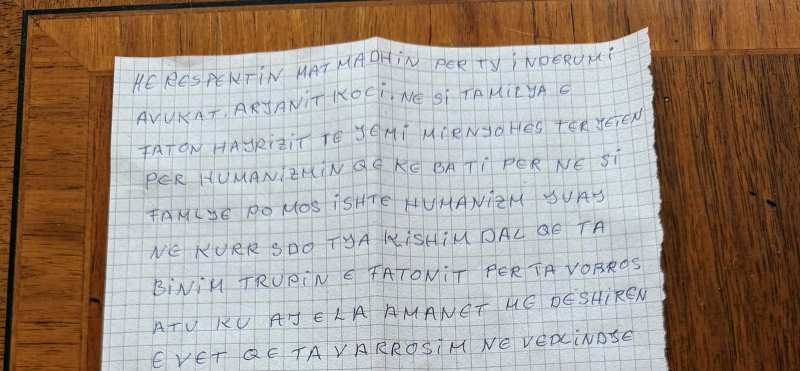 ME RESPENTIN MAT MADHIN PER TY I NDERUMI
AVUKAT. ARJANIT KOCI. NE SI FAMILJA E
FATON HAJRIZIT TE JEMI MIRNJOHES TER JETEN
PER HUMANIZMIN QE KE BA TI PER NE SI
FAMLJE PO MOS ISHTE HUMANIZM JUAJ
NE KURR SDO TJA KISHIM DAL QE TA
BINIM TRUPIN E FATONIT PER TA VORROS
ATU KU AJ E LA AMANET ME DESHIREN
E VET QE TA VARROSIM NE VEDLINDJE